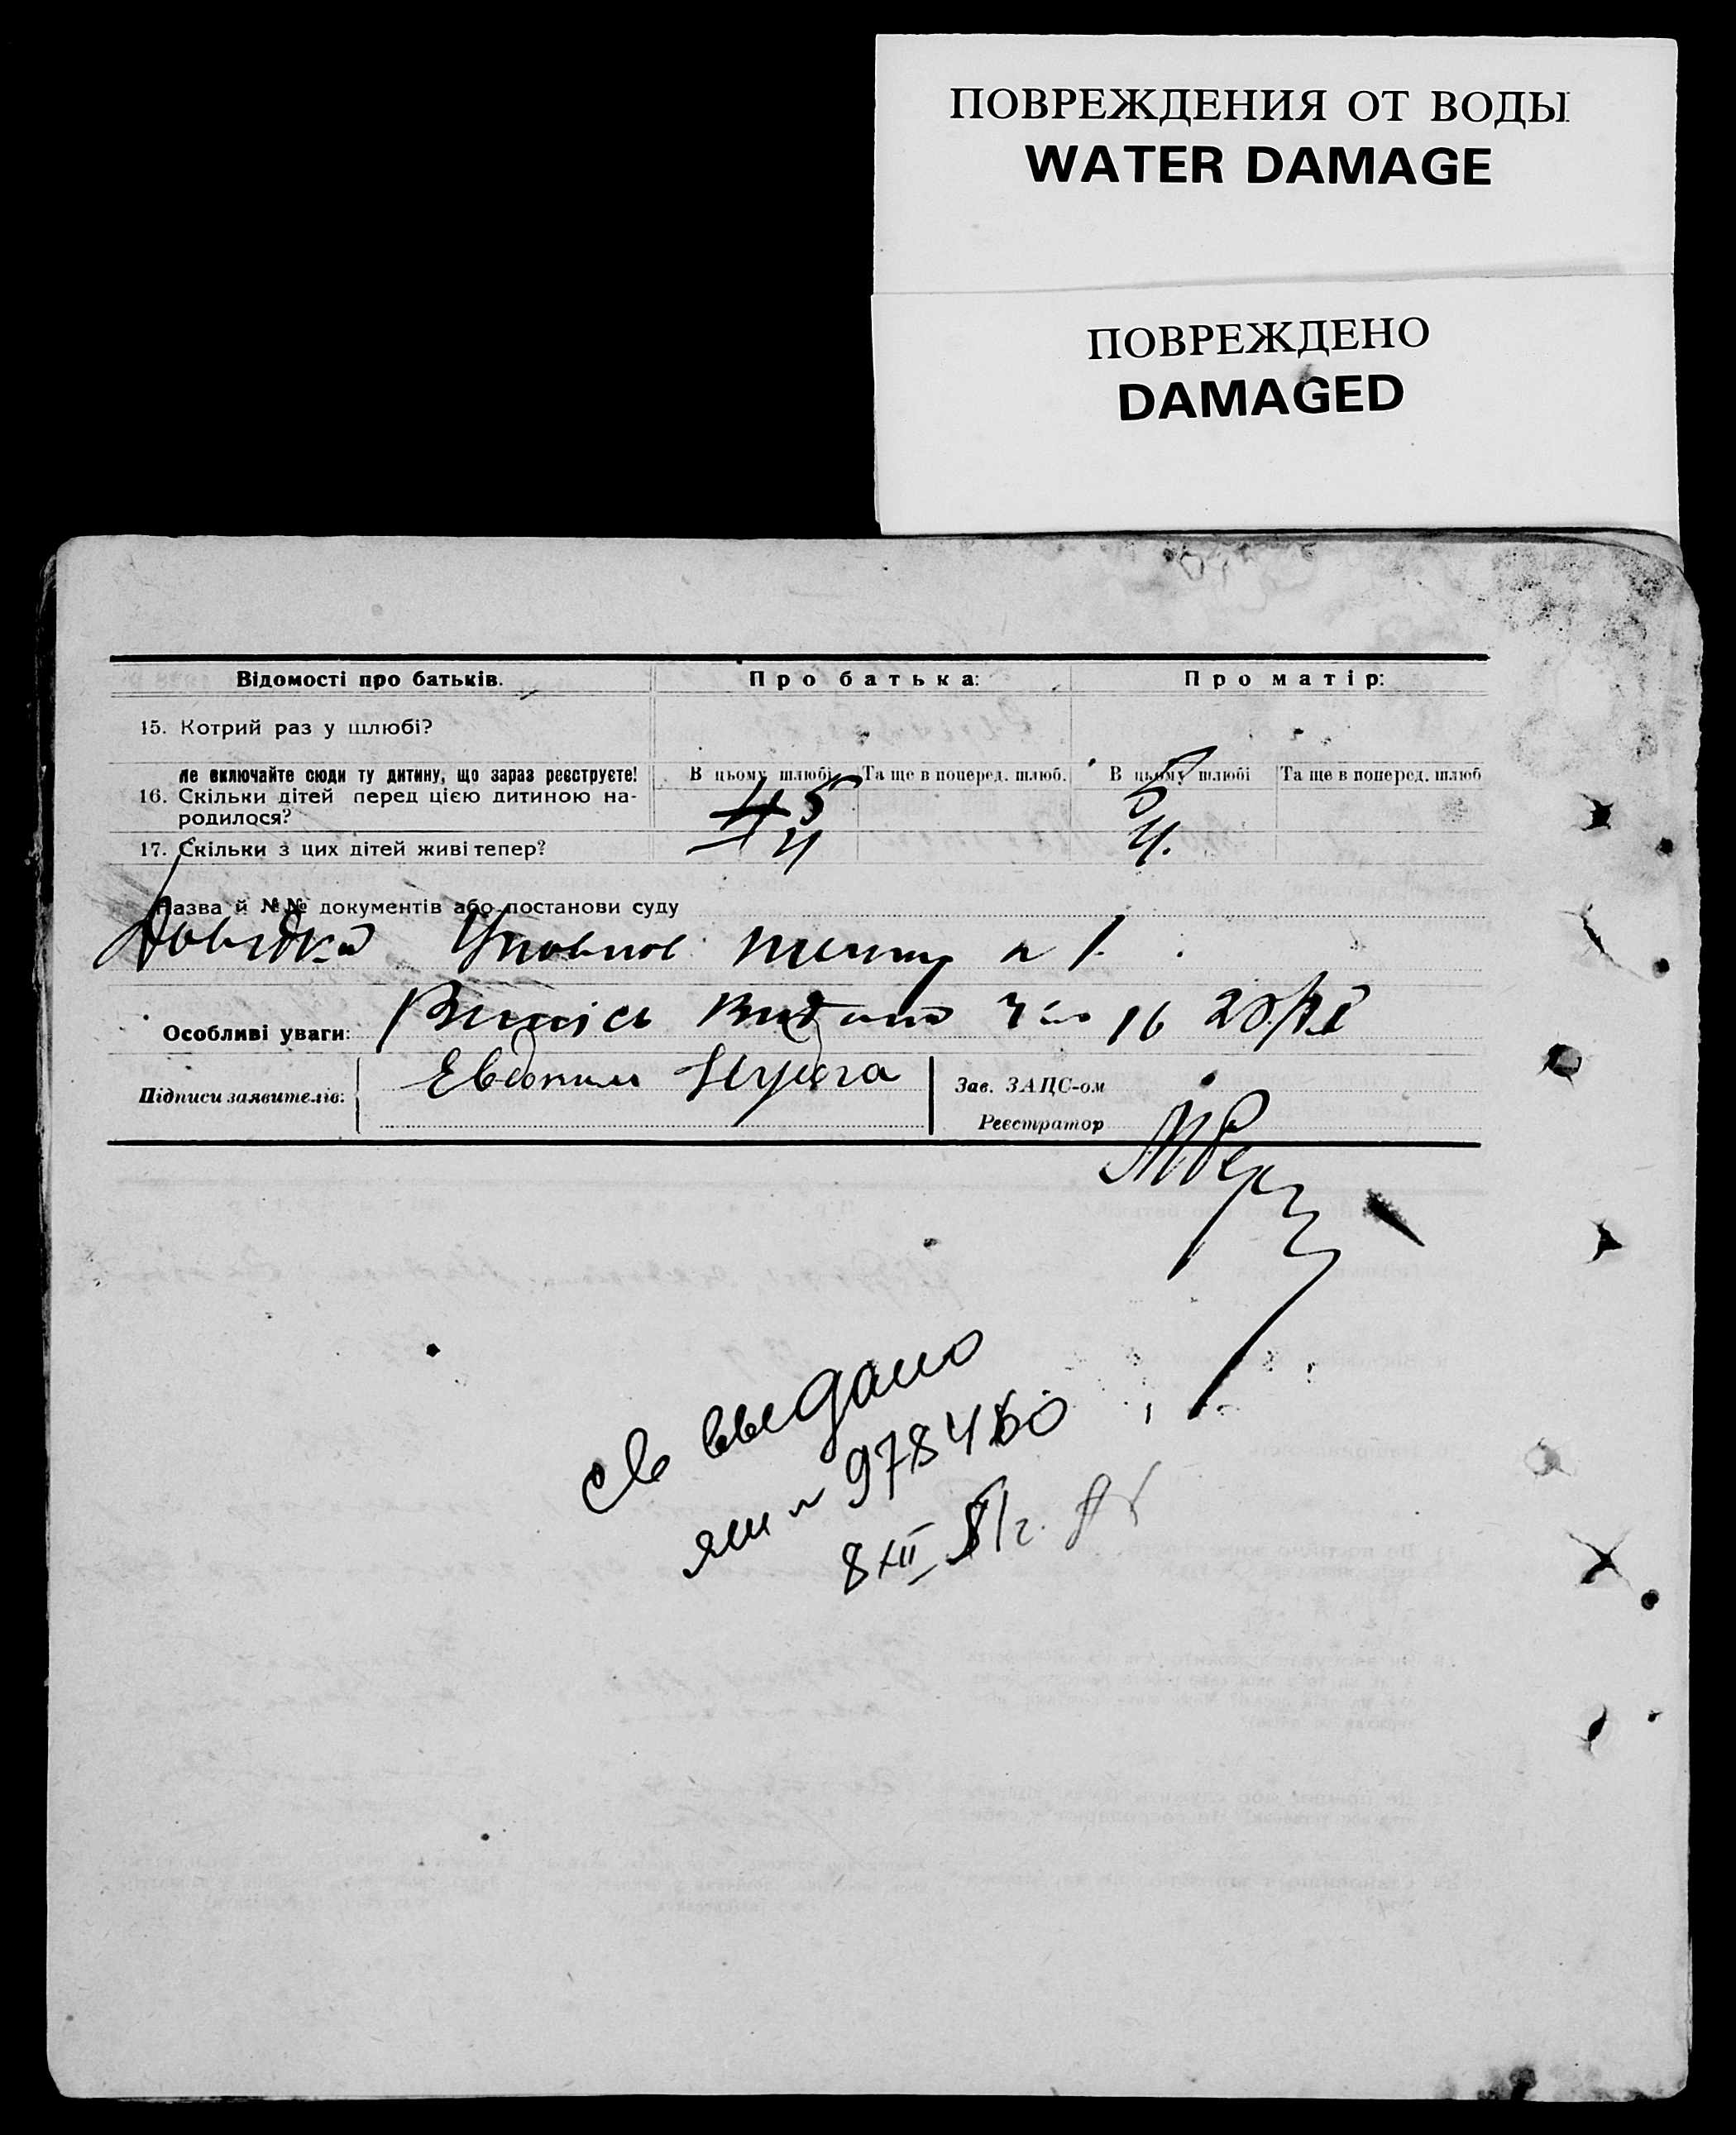 ПОВРЕЖДЕНИЯ ОТ ВОДЫ
WATER DAMAGE
ПОВРЕЖДЕНО
DAMAGED
Відомості про батьків. Про батька: Про матір:
15. Котрий раз у шлюбі?
не включайте сюди ту дитину, що зараз реєструєте! В цьому шлюбі Та ще в поперед. шлюб. В цьому шлюбі Та ще в поперед. шлюб
16. Скільки дітей перед цією дитиною на-
родилося? 5 5
17. Скільки з цих дітей живі тепер? 4 4.
Назва й №№ документів або постанови суду
Довідка
Особливі уваги: Випись видано 16
Підписи заявителів: Евдоким Зав. ЗАЦС-ом
Реєстратор
св выдано
яш № 978460
8 XII 51 г.